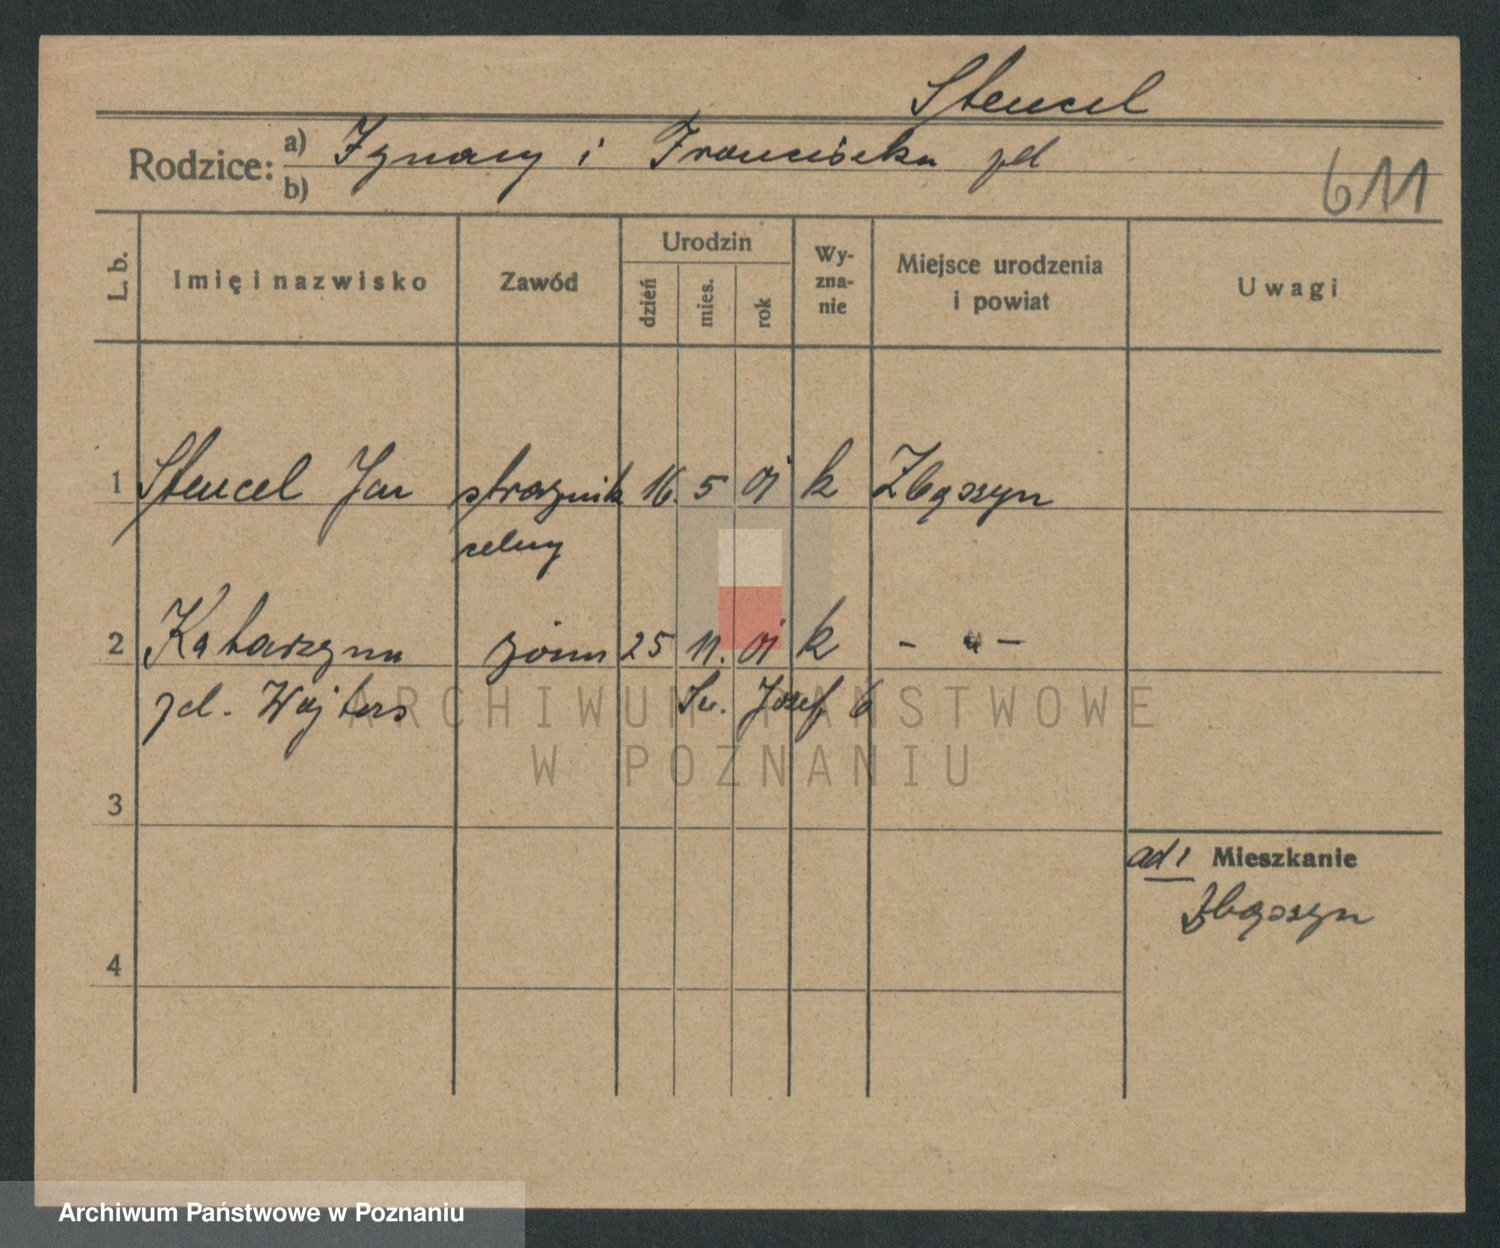 Stencel
Rodzice: a) Ignacy i Franciszka zd
b)
611
L. b.
Imię i nazwisko
Zawód
Urodzin
dzień
mies.
rok
Wy-
zna-
nie
Miejsce urodzenia
i powiat
Uwagi
1 Stencel Jan strażnik 16. 5 01 k Zbąszyń
celny
2 Katarzyna żona 25 11. 01 k - " -
zd. Wojtas Św. Józef 6
ARCHIWUM PAŃSTWOWE
W POZNANIU
3
ad 1 Mieszkanie
Zbąszyń
4
Archiwum Państwowe w Poznaniu